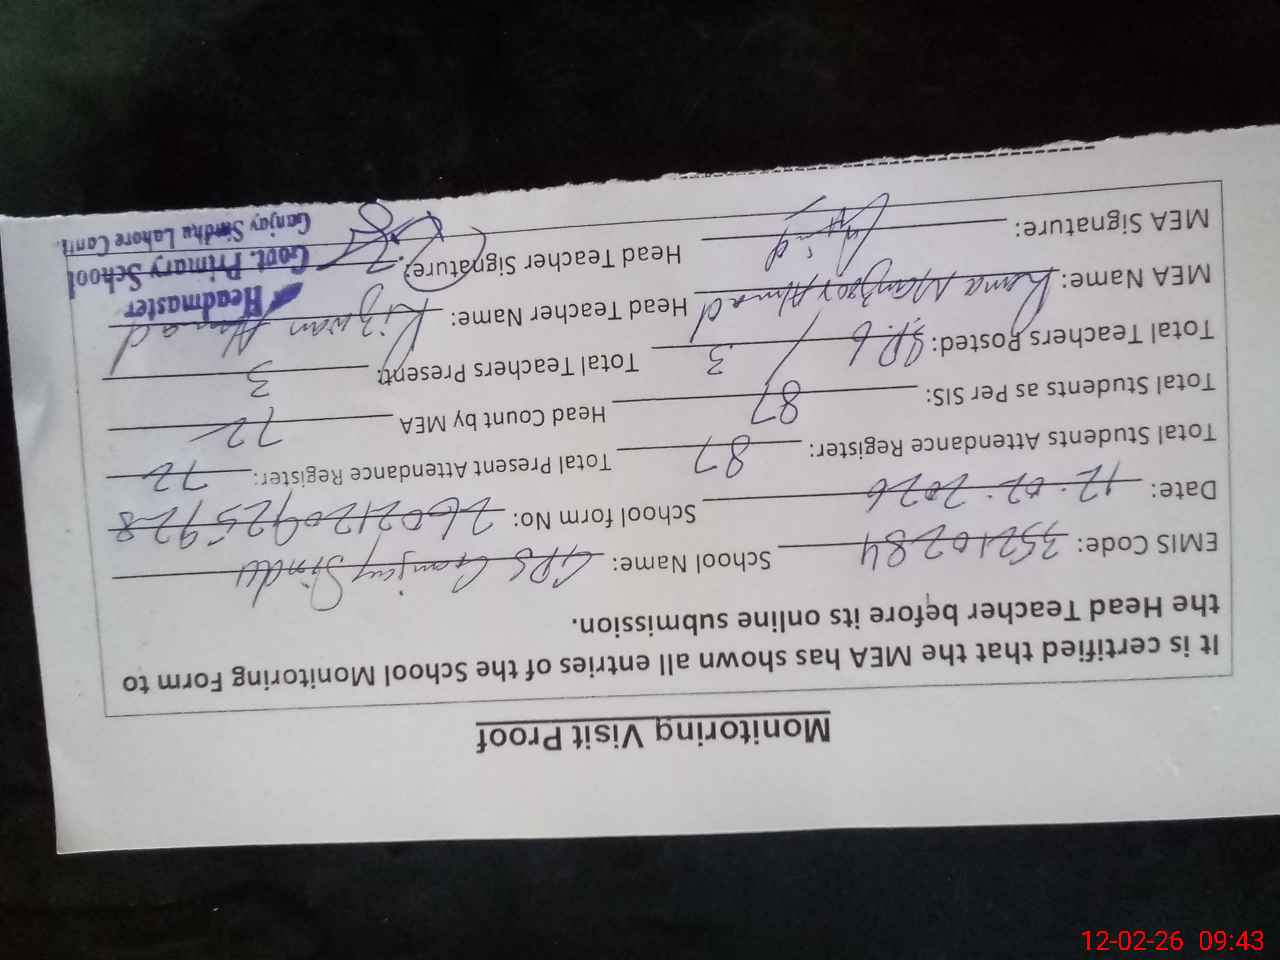 Monitoring Visit Proof
It is certified that the MEA has shown all entries of the School Monitoring Form to
the Head Teacher before its online submission.
EMIS Code: 35210284 School Name: GPS Ganjay Sindu
Date: 12.02.2026 School form No: 2602120925928
Total Students Attendance Register: 87 Total Present Attendance Register: 72
Total Students as Per SIS: 87 Head Count by MEA 72
Total Teachers Posted: 3 Total Teachers Present: 3
MEA Name: Rana Manzoor Ahmad Head Teacher Name: Rizwan Ahmad
MEA Signature: Head Teacher Signature:
Headmaster
Govt. Primary School
Ganjay Sindhu Lahore Cantt.
12-02-26 09:43